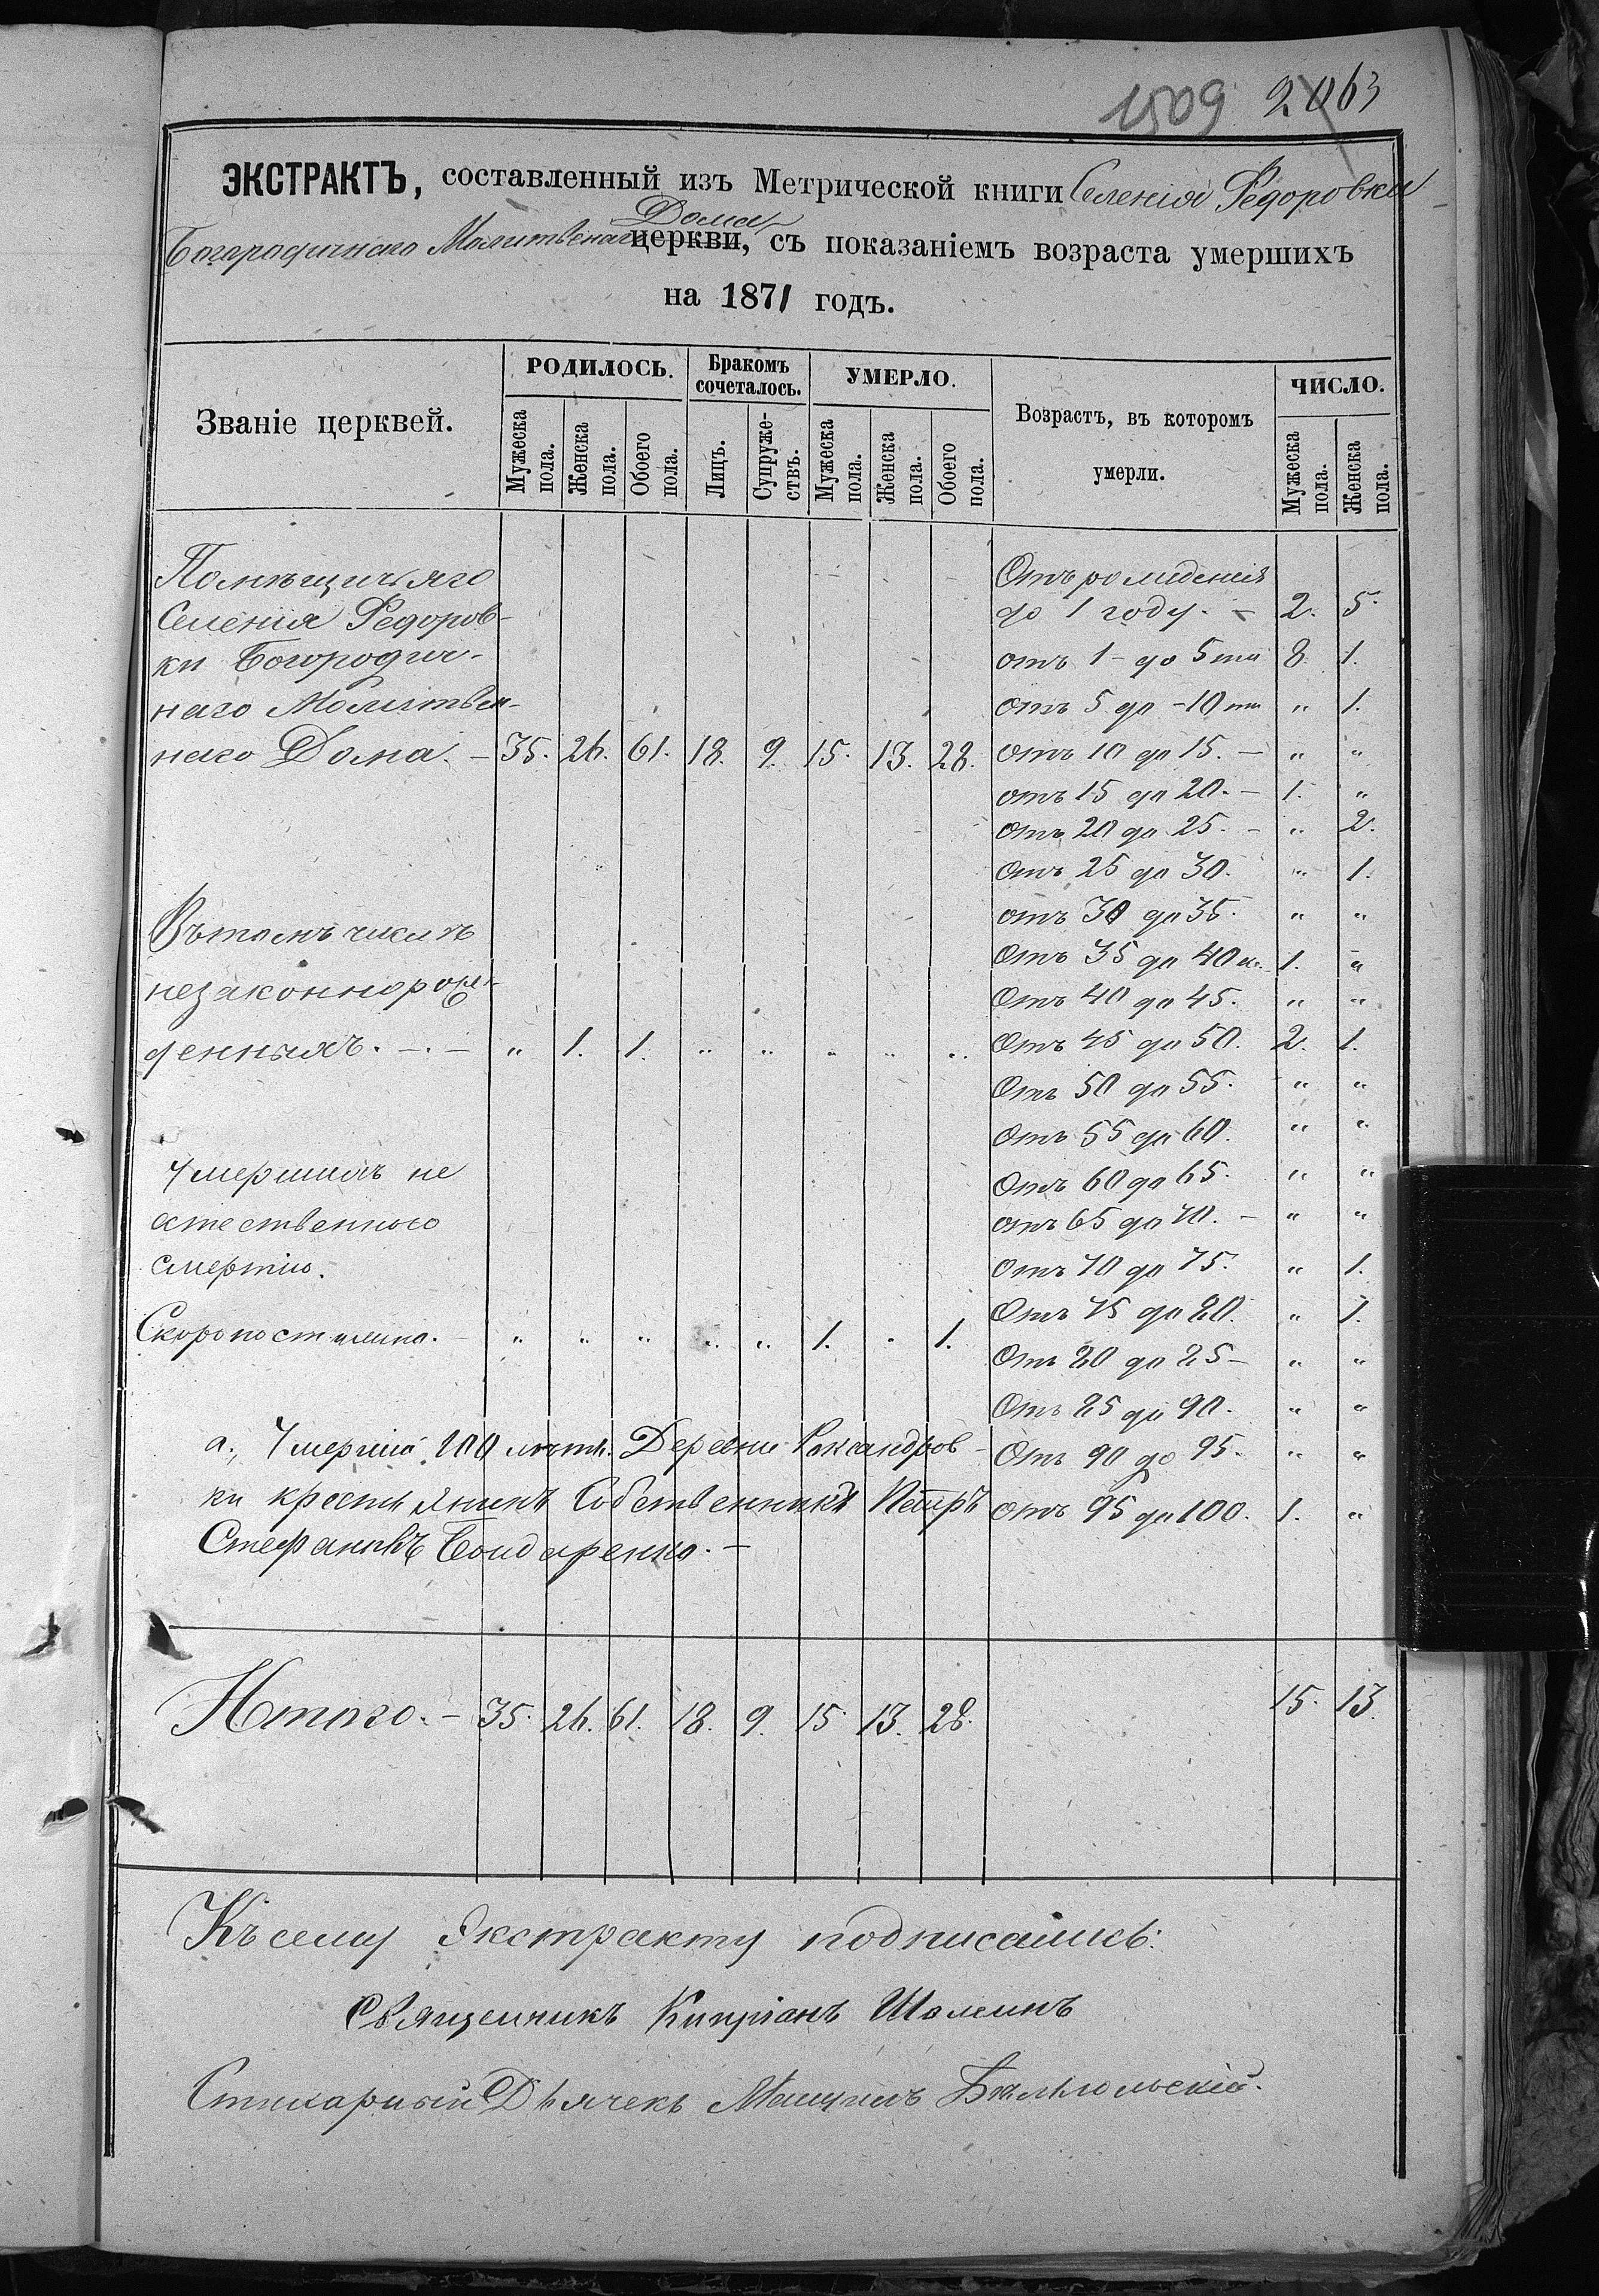 1509 2063
ЭКСТРАКТЪ, составленный изъ Метрической книги Селенія Ѳедоровки
Богородичнаго Молитвенаго Дома церкви, съ показаніемъ возраста умершихъ
на 1871 годъ.
Званіе церквей.
РОДИЛОСЬ.
Мужеска пола.
Женска пола.
Обоего пола.
Бракомъ сочеталось.
Лицъ.
Супружествъ.
УМЕРЛО.
Мужеска пола.
Женска пола.
Обоего пола.
Возрастъ, въ которомъ
умерли.
ЧИСЛО.
Мужеска пола.
Женска пола.
Помѣщичьяго Отъ рожденія
Селенія Ѳедоров- до 1 году. - 2. 5.
ки Богородич- отъ 1 - до 5ти 8. 1.
наго Молитвен- отъ 5 до - 10ти " 1.
наго Дома. - 35. 26. 61. 18. 9. 15. 13. 28. отъ 10 до 15. - " "
отъ 15 до 20. - 1. "
отъ 20 до 25. - " 2.
отъ 25 до 30. " 1.
Въ томъ числѣ отъ 30 до 35. " "
отъ 35 до 40 1. "
незаконнорож- отъ 40 до 45. " "
денныхъ. - . - " 1. 1. " " " " " отъ 45 до 50. 2. 1.
отъ 50 до 55. " "
отъ 55 до 60. " "
Умершихъ не отъ 60 до 65. " "
естественною отъ 65 до 70. - " "
смертію. отъ 70 до 75. " 1.
отъ 75 до 80. " 1.
Скоропостижно. - " " " " " 1. " 1.
отъ 80 до 85 - " "
отъ 85 до 90. " "
а., Умершій 100 лѣтъ. Деревни Роксандров- отъ 90 до 95. " "
ки крестьянинъ Собственникъ Петръ отъ 95 до 100. 1. "
Стефановъ Бондаренко. -
Итого. - 35. 26. 61. 18. 9. 15. 13. 28. 15. 13.
Къ сему Экстракту подписались:
Священникъ Кипріанъ
Стихарный Дьячекъ